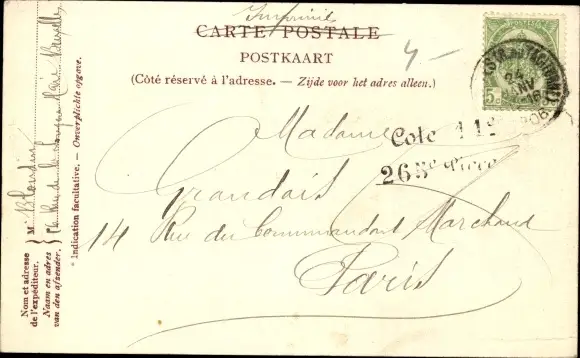 Imprimé
CARTE POSTALE
POSTKAART
(Côté réservé à l'adresse. — Zijde voor het adres alleen.)
4 —
5c
24
JANV
16
1906
Madame
Cote 11e
265e Pièce
Grandais
14 Rue du Commandant Marchand
Paris
Nom et adresse
de l'expéditeur.
Naam en adres
van den afzender.
M Blondin
Rue de la Bruxelles
* Indication facultative. — Onverplichte opgave.